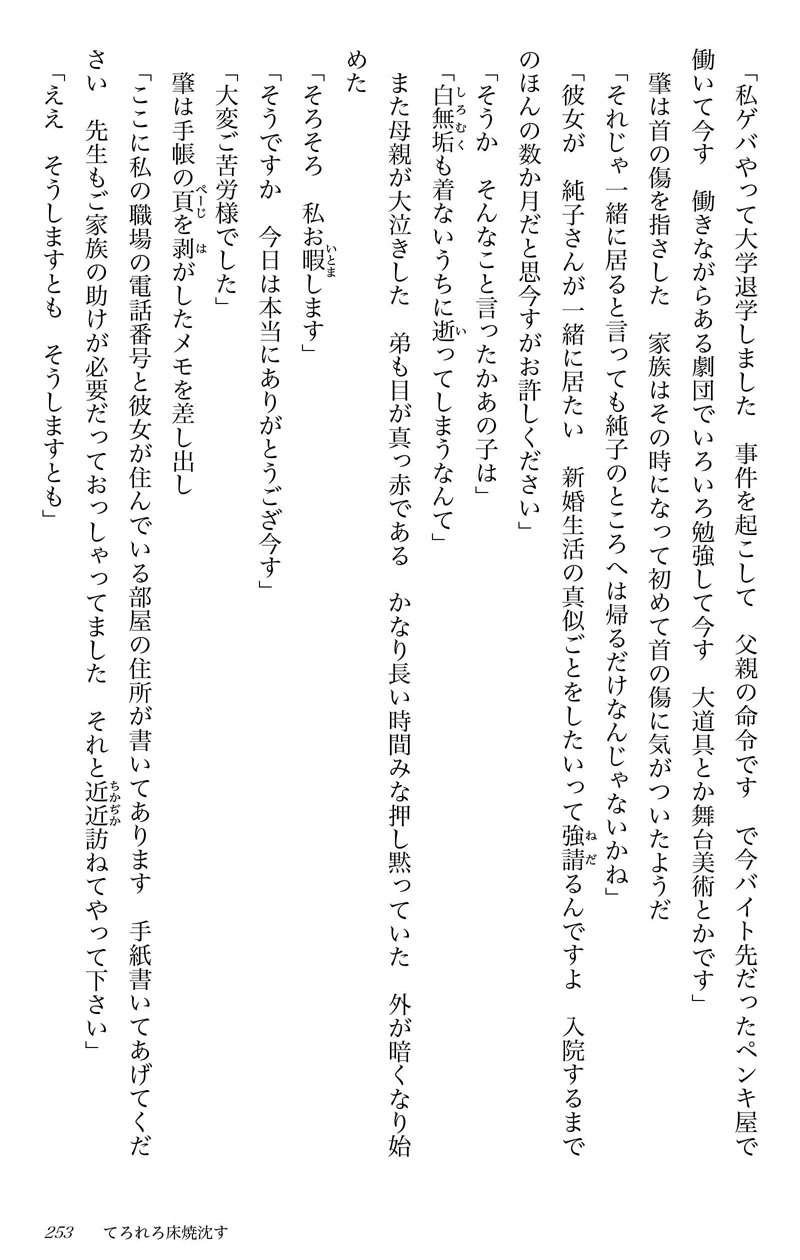 「私ゲバやって大学退学しました　事件を起こして　父親の命令です　で今バイト先だったペンキ屋で
働いて今す　働きながらある劇団でいろいろ勉強して今す　大道具とか舞台美術とかです」
肇は首の傷を指さした　家族はその時になって初めて首の傷に気がついたようだ
「それじゃ一緒に居ると言っても純子のところへは帰るだけなんじゃないかね」
「彼女が　純子さんが一緒に居たい　新婚生活の真似ごとをしたいって強請るんですよ　入院するまで
のほんの数か月だと思今すがお許しください」
「そうか　そんなこと言ったかあの子は」
「白無垢も着ないうちに逝ってしまうなんて」
また母親が大泣きした　弟も目が真っ赤である　かなり長い時間みな押し黙っていた　外が暗くなり始
めた
「そろそろ　私お暇します」
「そうですか　今日は本当にありがとうござ今す」
「大変ご苦労様でした」
肇は手帳の頁を剥がしたメモを差し出し
「ここに私の職場の電話番号と彼女が住んでいる部屋の住所が書いてあります　手紙書いてあげてくだ
さい　先生もご家族の助けが必要だっておっしゃってました　それと近近訪ねてやって下さい」
「ええ　そうしますとも　そうしますとも」
253　てろれろ床焼沈す